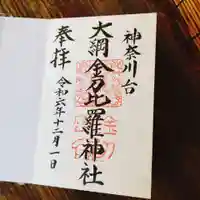 神奈川台
大綱金刀比羅神社
奉拝
令和六年十二月一日